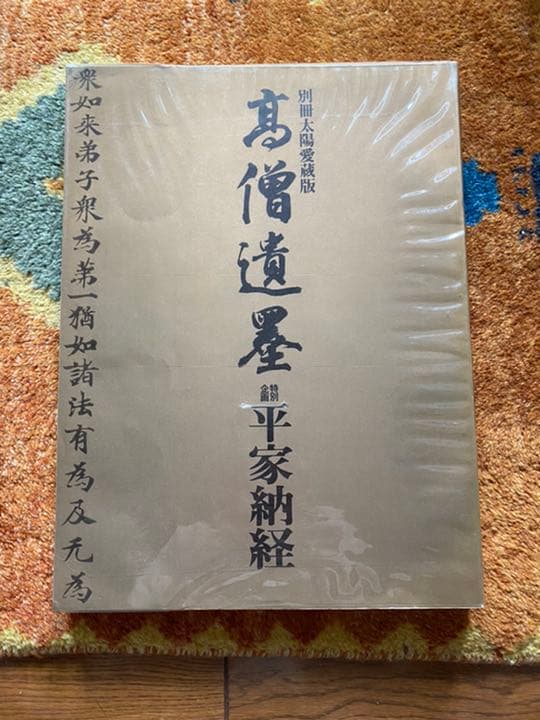 別冊太陽愛蔵版
高僧遺墨
特別
企画
平家納経
衆如来弟子衆為第一猶如諸法有為及无為